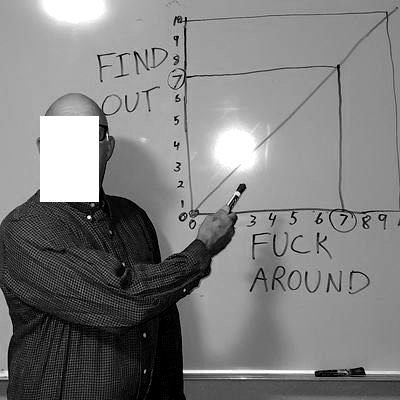 FIND
OUT
10
9
8
7
6
5
4
3
2
1
0
0 3 4 5 6 7 8 9
FUCK
AROUND